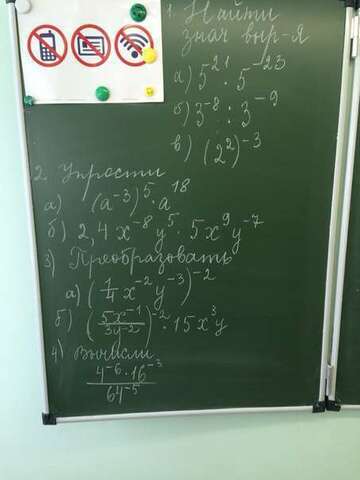 1. Найти
знач выр-я
а) 5²¹ · 5⁻²³
б) 3⁻⁸ : 3⁻⁹
в) (2²)⁻³
2. Упрости
а) (a⁻³)⁵ · a¹⁸
б) 2,4x⁻⁸y⁵ · 5x⁹y⁻⁷
3) Преобразовать
а) (1/4 x⁻²y⁻³)⁻²
б) (5x⁻¹/3y⁻²)⁻² · 15x³y
4) Вычисли
4⁻⁶ · 16⁻³
64⁻⁵